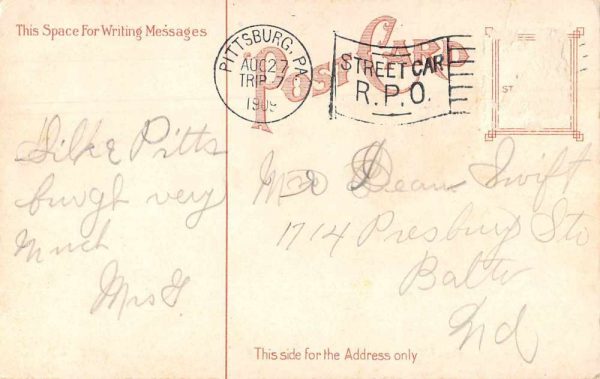 This Space For Writing Messages
POST CARD
PITTSBURG, PA.
AUG 27
TRIP 7
1909
STREET CAR
R.P.O.
ST
I like Pitts
burgh very
much
Mrs
Dean Swift
1714 Presbury St
Balto
Md
This side for the Address only